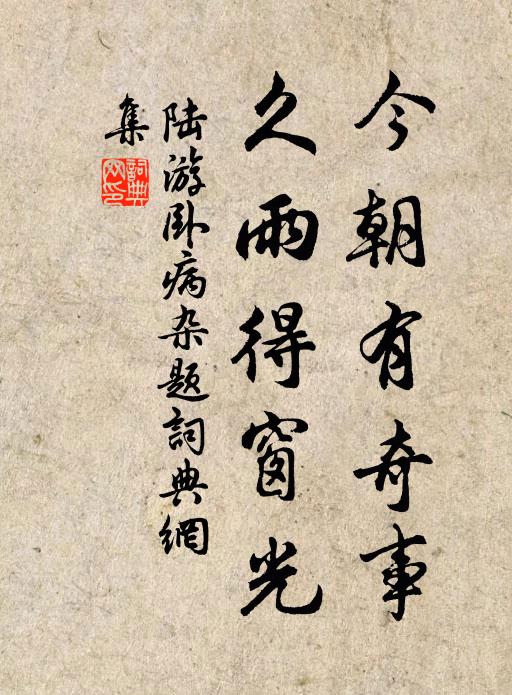 今朝有奇事
久雨得窗光
陆游卧病杂题詞典網
集
詞典网印